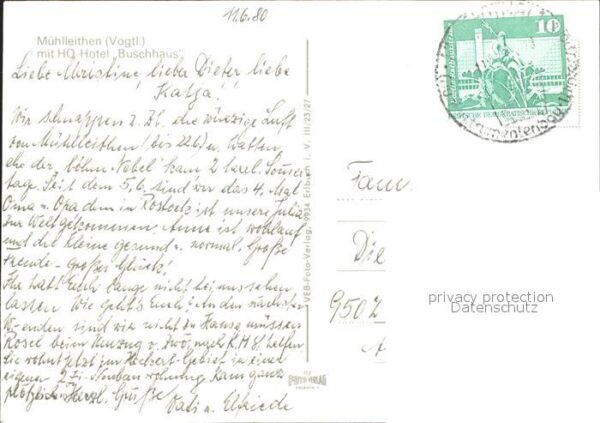 11.6.80
Mühlleithen (Vogtl.)
mit HO-Hotel „Buschhaus“
Liebe Christine, lieber Dieter, liebe
Katja!
Wir schnappen z. Zt. die würzige Luft
von Mühlleithen (bis 22.6.) u. warten
ehe der böhm. Nebel kam 2 herrl. Sonnen
tage. Seit dem 5.6. sind wir das 4. Mal
Oma u. Opa denn in ist unsere Julia
zur Welt gekommen. Anne ist wohlauf
und die kleine gesund u. normal. Große
Freude – großes Glück!
Ihr habt Euch lange nicht bei uns sehen
lassen. Wie geht's Euch? An den nächsten
W-enden sind wir nicht zu Hause, müssen
Rosel beim Umzug v. nach K.M.St. helfen
sie wohnt jetzt im Heckert-Gebiet in einer
eigenen 2 Zi-Neubauwohnung. Kam ganz
plötzlich. Herzl. Grüße
Vati u. Elfriede
VEB-Foto-Verlag, 9934 Erlbach i. V. III/23/27
FOTO VERLAG
10
DEUTSCHE DEMOKRATISCHE
Fam.
Die
9502
privacy protection
Datenschutz